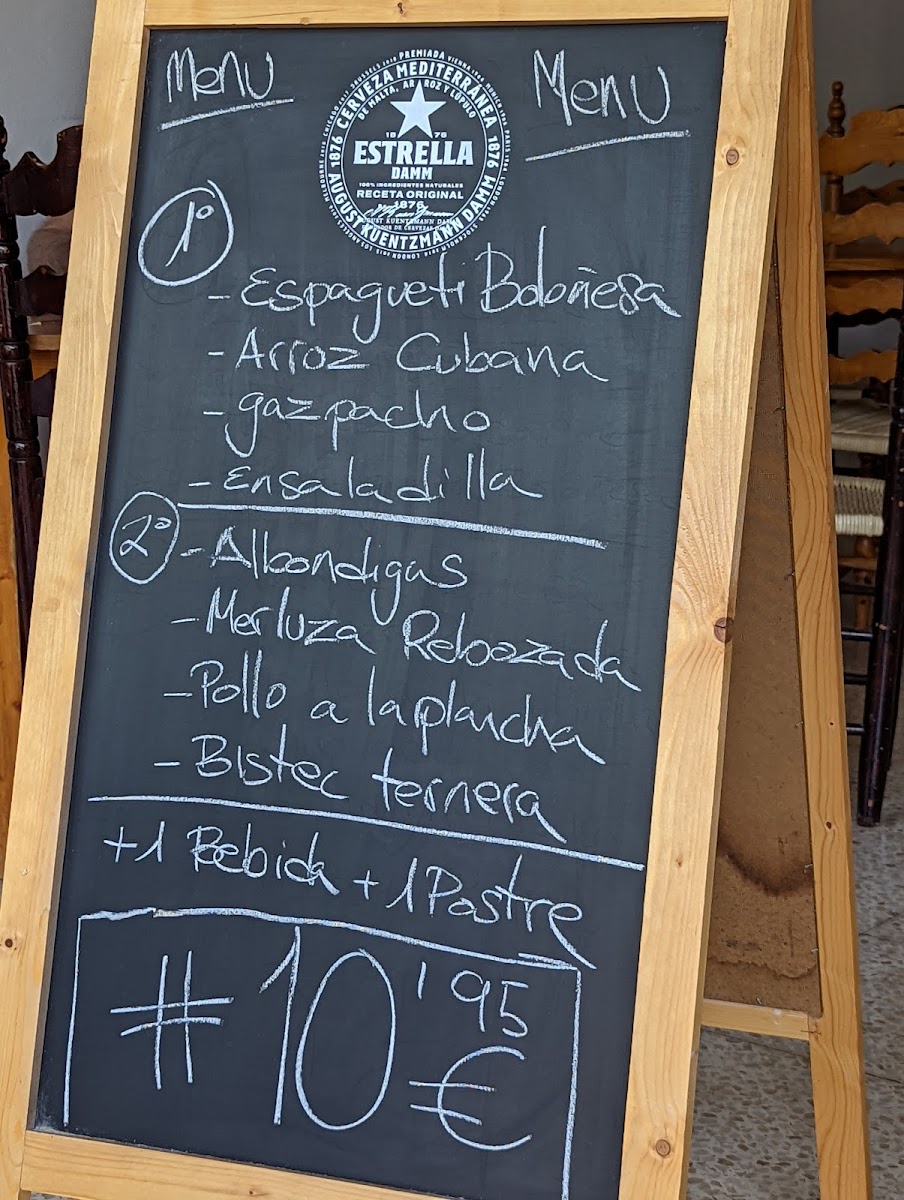 Menu
Menu
CERVEZA MEDITERRÁNEA
DE MALTA, ARROZ Y LÚPULO
1876
1876
1876
ESTRELLA
DAMM
100% INGREDIENTES NATURALES
RECETA ORIGINAL
1876
AUGUST KUENTZMANN DAMM
1º
- Espagueti Boloñesa
- Arroz Cubana
- gazpacho
- Ensaladilla
2º - Albondigas
- Merluza Rebozada
- Pollo a la plancha
- Bistec ternera
+1 Bebida +1 Postre
# 10'95
€